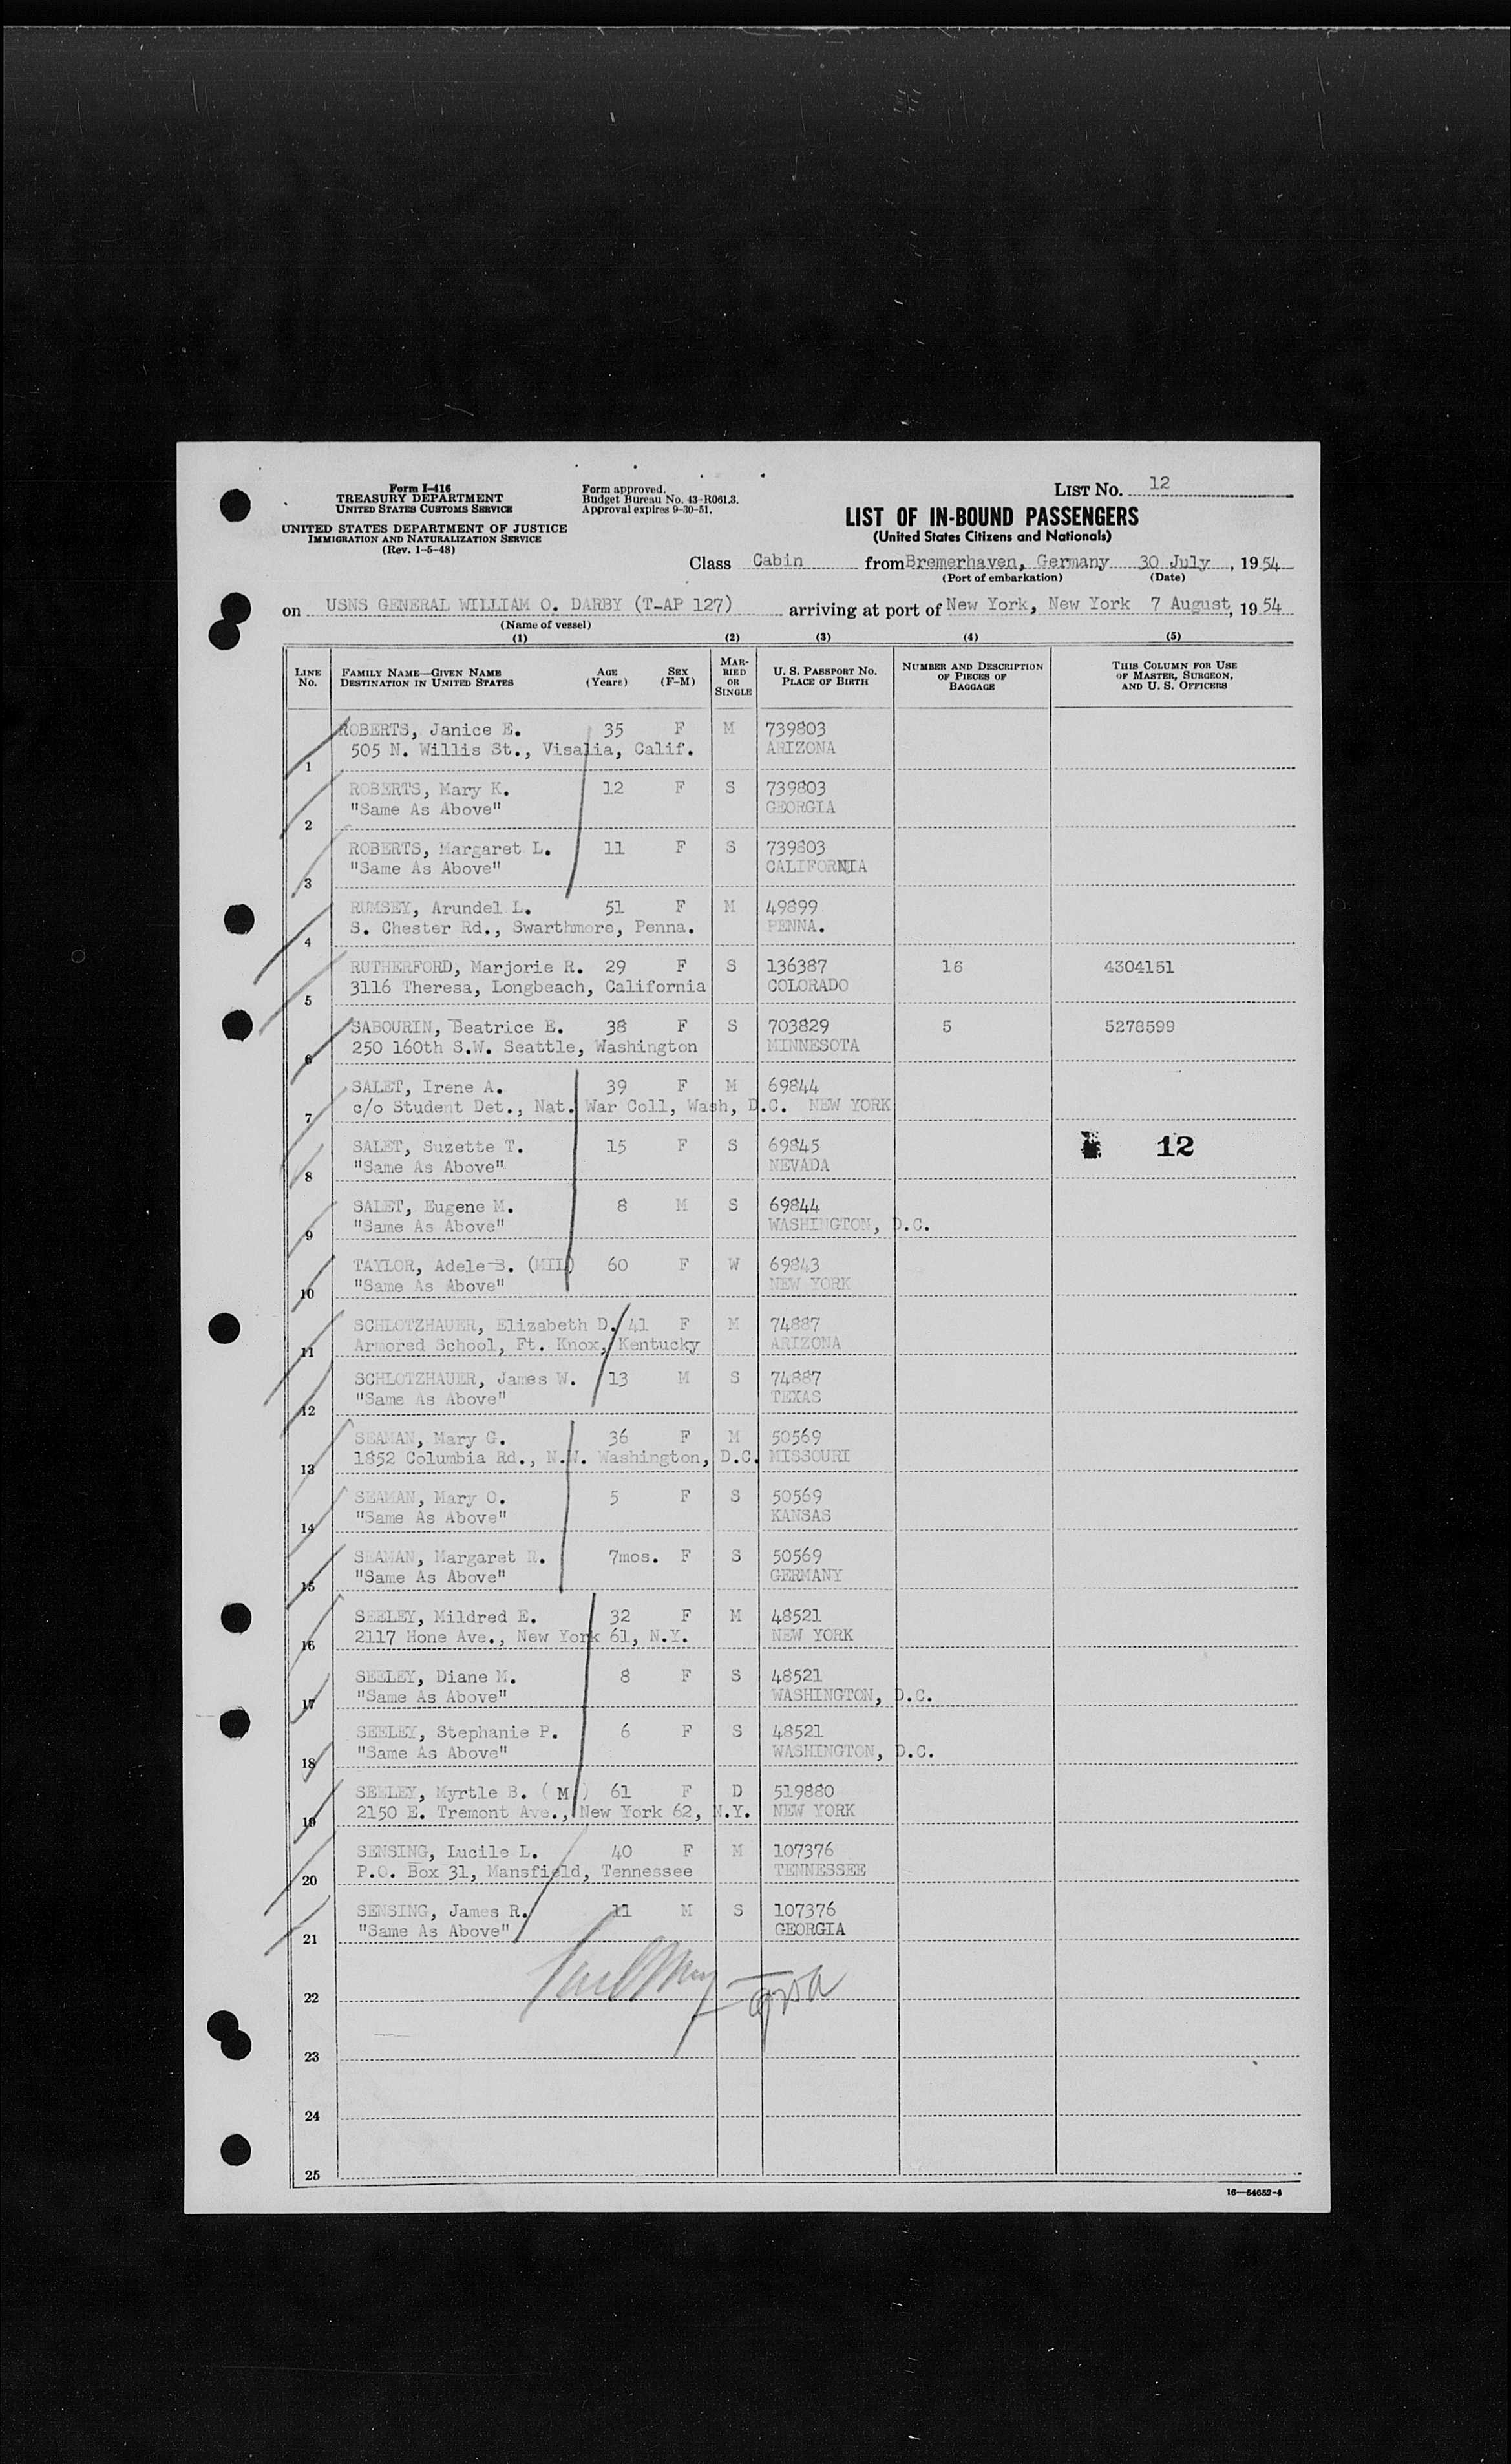 Form I-416
TREASURY DEPARTMENT
UNITED STATES CUSTOMS SERVICE
UNITED STATES DEPARTMENT OF JUSTICE
IMMIGRATION AND NATURALIZATION SERVICE
(Rev. 1-5-48)
Form approved.
Budget Bureau No. 43-R061.3.
Approval expires 9-30-51.
LIST No. 12
LIST OF IN-BOUND PASSENGERS
(United States Citizens and Nationals)
Class Cabin from Bremerhaven, Germany 30 July, 1954
(Port of embarkation) (Date)
on USNS GENERAL WILLIAM O. DARBY (T-AP 127) arriving at port of New York, New York 7 August, 1954
(Name of vessel)
(1) (2) (3) (4) (5)
LINE No. FAMILY NAME—GIVEN NAME DESTINATION IN UNITED STATES AGE (Years) SEX (F-M) MARRIED OR SINGLE U. S. PASSPORT NO. PLACE OF BIRTH NUMBER AND DESCRIPTION OF PIECES OF BAGGAGE THIS COLUMN FOR USE OF MASTER, SURGEON, AND U. S. OFFICERS
ROBERTS, Janice E. 35 F M 739803
1 505 N. Willis St., Visalia, Calif. ARIZONA
ROBERTS, Mary K. 12 F S 739803
2 "Same As Above" GEORGIA
ROBERTS, Margaret L. 11 F S 739803
3 "Same As Above" CALIFORNIA
RUMSEY, Arundel L. 51 F M 49899
4 S. Chester Rd., Swarthmore, Penna. PENNA.
RUTHERFORD, Marjorie R. 29 F S 136387 16 4304151
5 3116 Theresa, Longbeach, California COLORADO
SABOURIN, Beatrice E. 38 F S 703829 5 5278599
6 250 160th S.W. Seattle, Washington MINNESOTA
SALET, Irene A. 39 F M 69844
7 c/o Student Det., Nat. War Coll, Wash, D.C. NEW YORK
SALET, Suzette T. 15 F S 69845 12
8 "Same As Above" NEVADA
SALET, Eugene M. 8 M S 69844
9 "Same As Above" WASHINGTON, D.C.
TAYLOR, Adele B. (MIL) 60 F W 69843
10 "Same As Above" NEW YORK
SCHLOTZHAUER, Elizabeth D. 41 F M 74887
11 Armored School, Ft. Knox, Kentucky ARIZONA
SCHLOTZHAUER, James W. 13 M S 74887
12 "Same As Above" TEXAS
SEAMAN, Mary G. 36 F M 50569
13 1852 Columbia Rd., N.W. Washington, D.C. MISSOURI
SEAMAN, Mary O. 5 F S 50569
14 "Same As Above" KANSAS
SEAMAN, Margaret R. 7mos. F S 50569
15 "Same As Above" GERMANY
SEELEY, Mildred E. 32 F M 48521
16 2117 Hone Ave., New York 61, N.Y. NEW YORK
SEELEY, Diane M. 8 F S 48521
17 "Same As Above" WASHINGTON, D.C.
SEELEY, Stephanie P. 6 F S 48521
18 "Same As Above" WASHINGTON, D.C.
SEELEY, Myrtle B. (M) 61 F D 519880
19 2150 E. Tremont Ave., New York 62, N.Y. NEW YORK
SENSING, Lucile L. 40 F M 107376
20 P.O. Box 31, Mansfield, Tennessee TENNESSEE
SENSING, James R. 11 M S 107376
21 "Same As Above" GEORGIA
22
23
24
25
16—54652-4